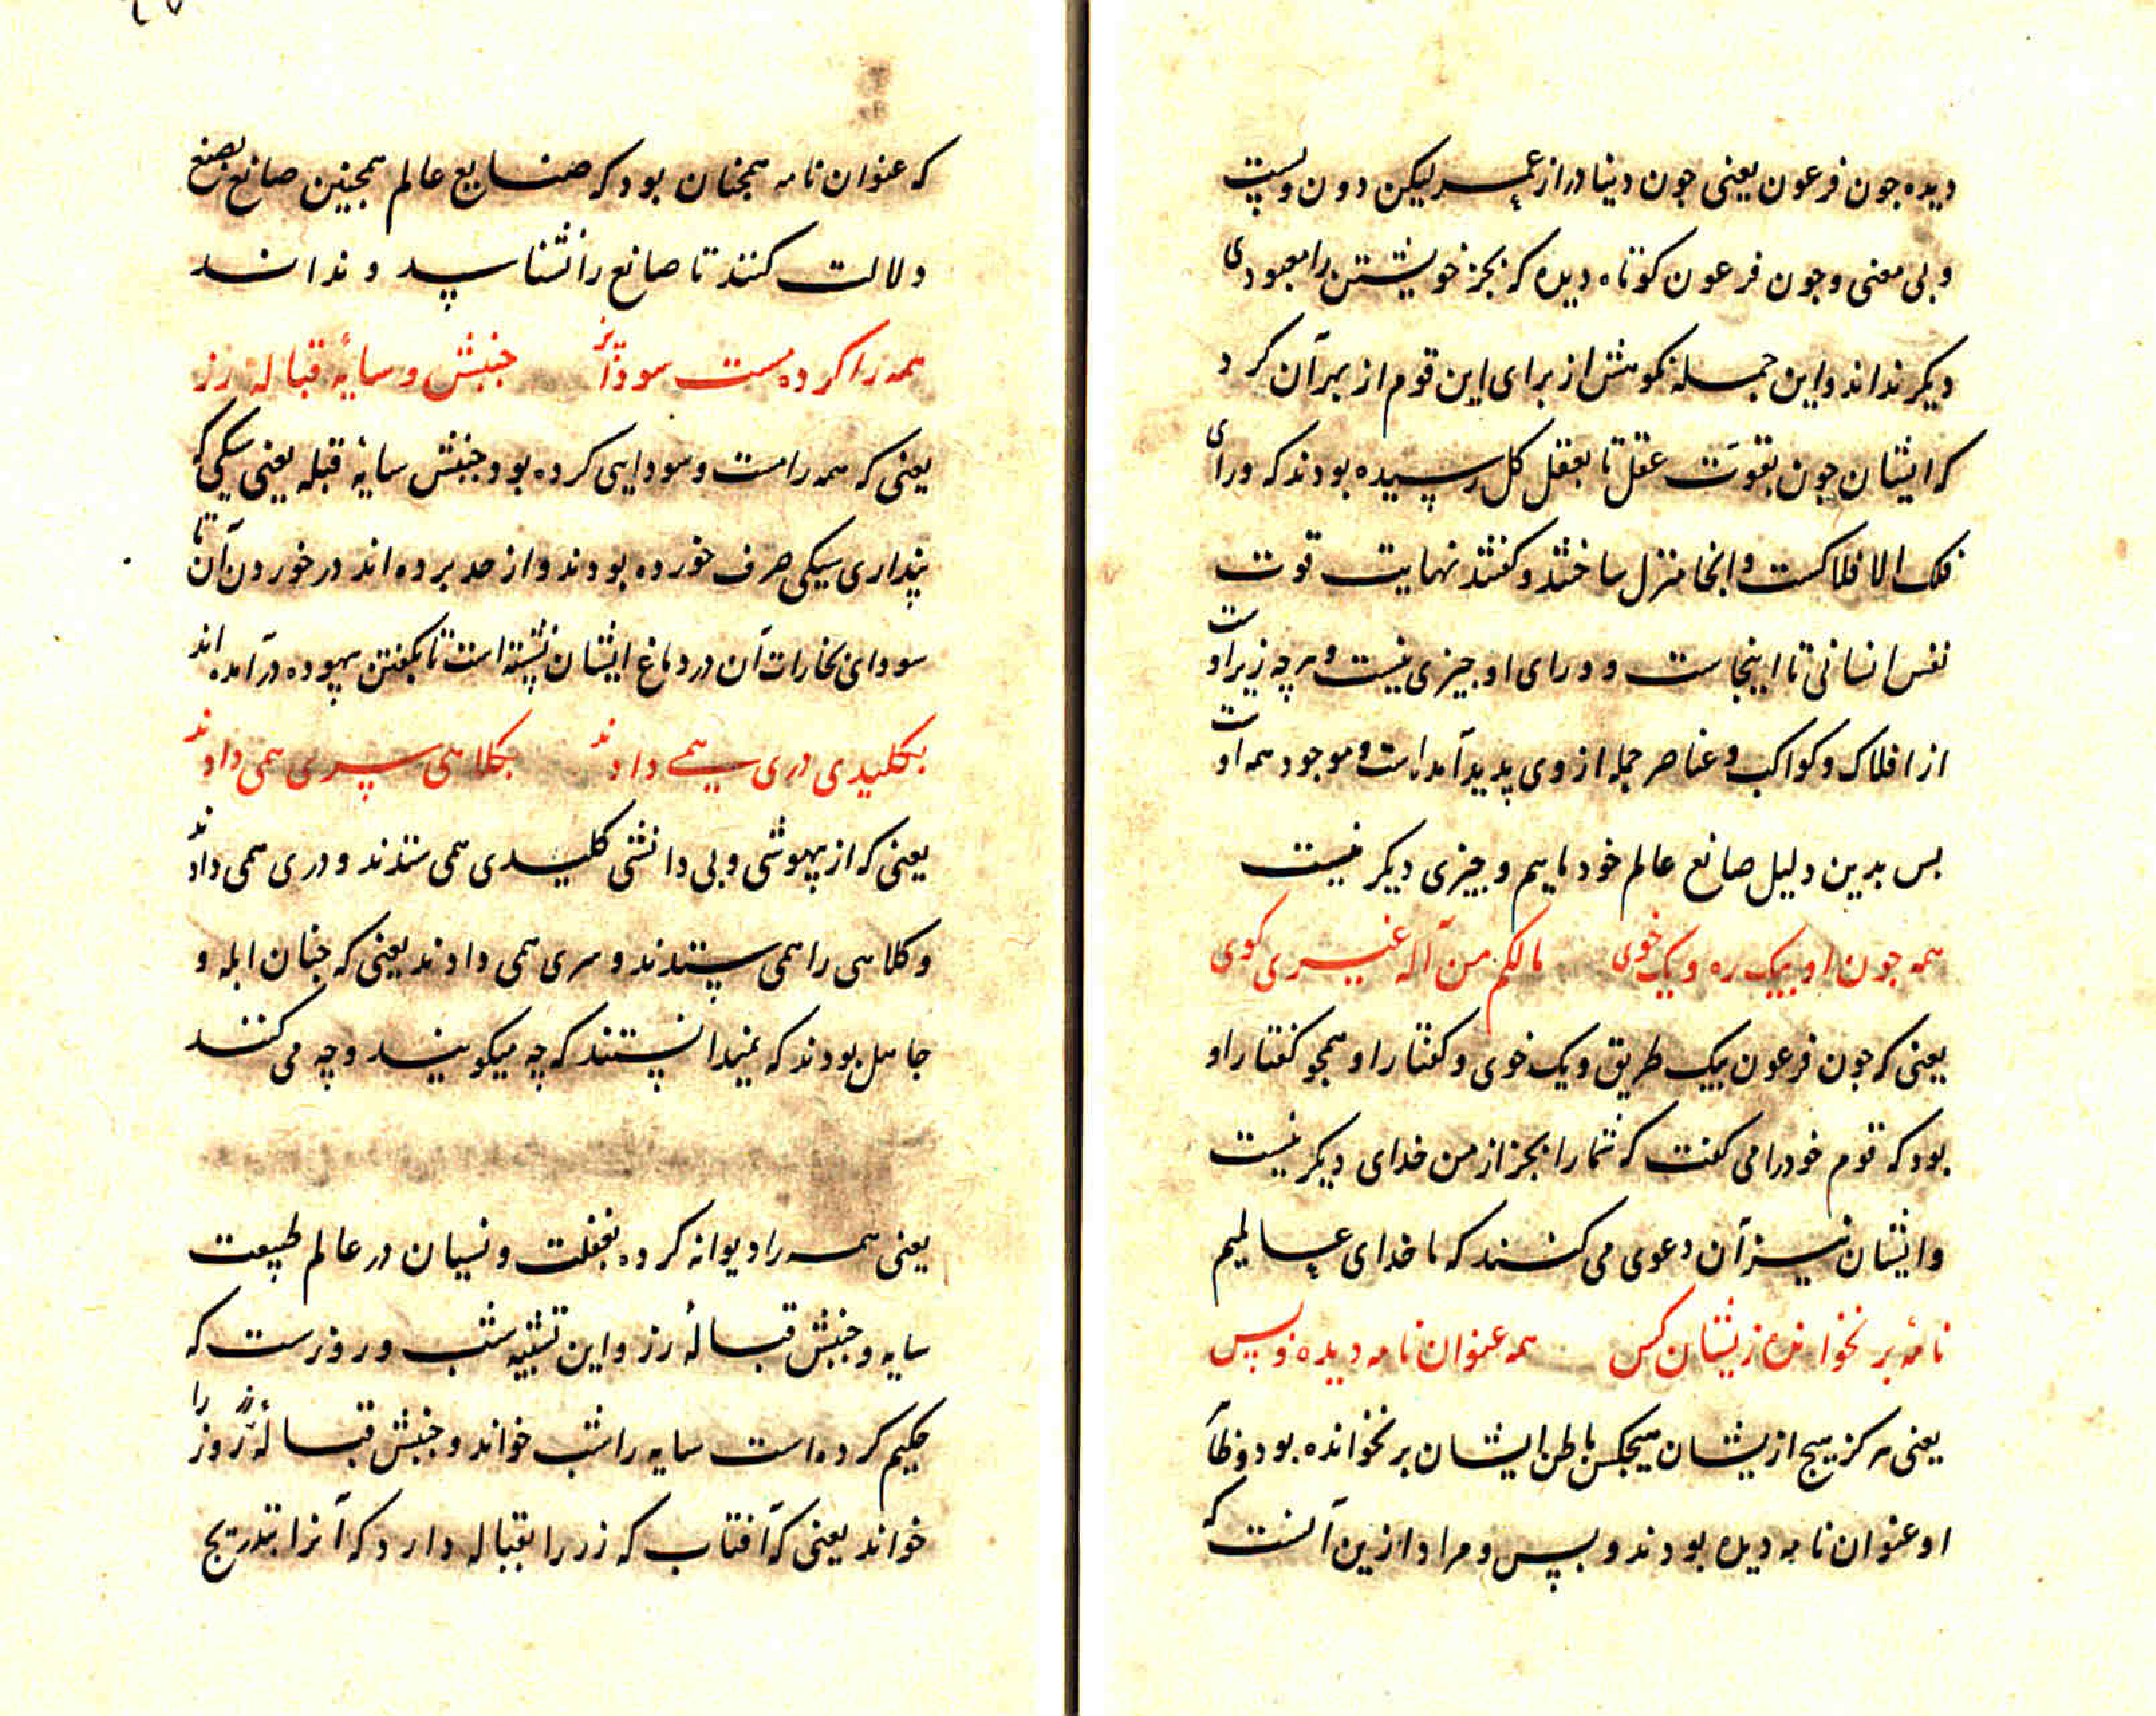 دیده جون فرعون یعنی جون دنیا دراز عمر لیکن دون و پست
و بی معنی و جون فرعون کوتاه دیده که بجز خویشتن را معبودی
دیکر نداند و این جمله نکوهش از برای این قوم از بهر آن کرد
که ایشان جون بقوت عقل تا بعقل کل رسیده بودند که ورای
فلک الافلاکست و انجا منزل ساختند و کفتند نهایت قوت
نفس انسانی تا اینجاست و ورای او جیزی نیست و هرچه زیر اوست
از افلاک و کواکب و عناصر جمله از وی پدید آمده است و موجود همه اوست
بس بدین دلیل صانع عالم خود ماییم و جیزی دیکر نیست
همه جون او بیک ره و یک خوی مالکم من آله غیری کوی
یعنی که جون فرعون بیک طریق و یک خوی و کفتار او همجو کفتار او
بود که قوم خود را می کفت که شما را بجز از من خدای دیکر نیست
و ایشان نیز آن دعوی می کنند که ما خدای عالمیم
نامه بر نخوانده زیشان کس همه عنوان نامه دیده و بس
یعنی هرکز هیج ازیشان هیجکس باطن ایشان بر نخوانده بود و ظا
او عنوان نامه دیده بودند و بس و مراد ازین آنست که
که عنوان نامه همجنان بود که صنایع عالم همجنین صانع بصنع
دلالت کنند تا صانع را نشناسد و نداند
همه را کرده مست سودا بز جنبش و سایهٔ قبالهٔ رز
یعنی که همه را مست و سودایی کرده بود جنبش سایهٔ قبله یعنی سیکی که
پنداری سیکی صرف خورده بودند و از حد برده اند در خوردن آن تا
سودای بخارات آن در دماغ ایشان نشسته است تا بکفتن بیهوده درآمده اند
بکلیدی دری همی دادند بکلاهی سری همی دادند
یعنی که از بیهوشی و بی دانشی کلیدی همی ستدند و دری همی دادند
و کلاهی را همی ستدند و سری همی دادند یعنی که جنان ابله و
جاهل بودند که نمیدانستند که چه میکویند و چه می کنند
یعنی همه را دیوانه کرده بغفلت و نسیان در عالم طبیعت
سایه و جنبش قبالهٔ رز و این تشبیه شب و روزست که
حکیم کرده است سایه را شب خواند و جنبش قبالهٔ رز روز را
خواند یعنی که آفتاب که زر را بقباله دارد که آنرا بتدریج